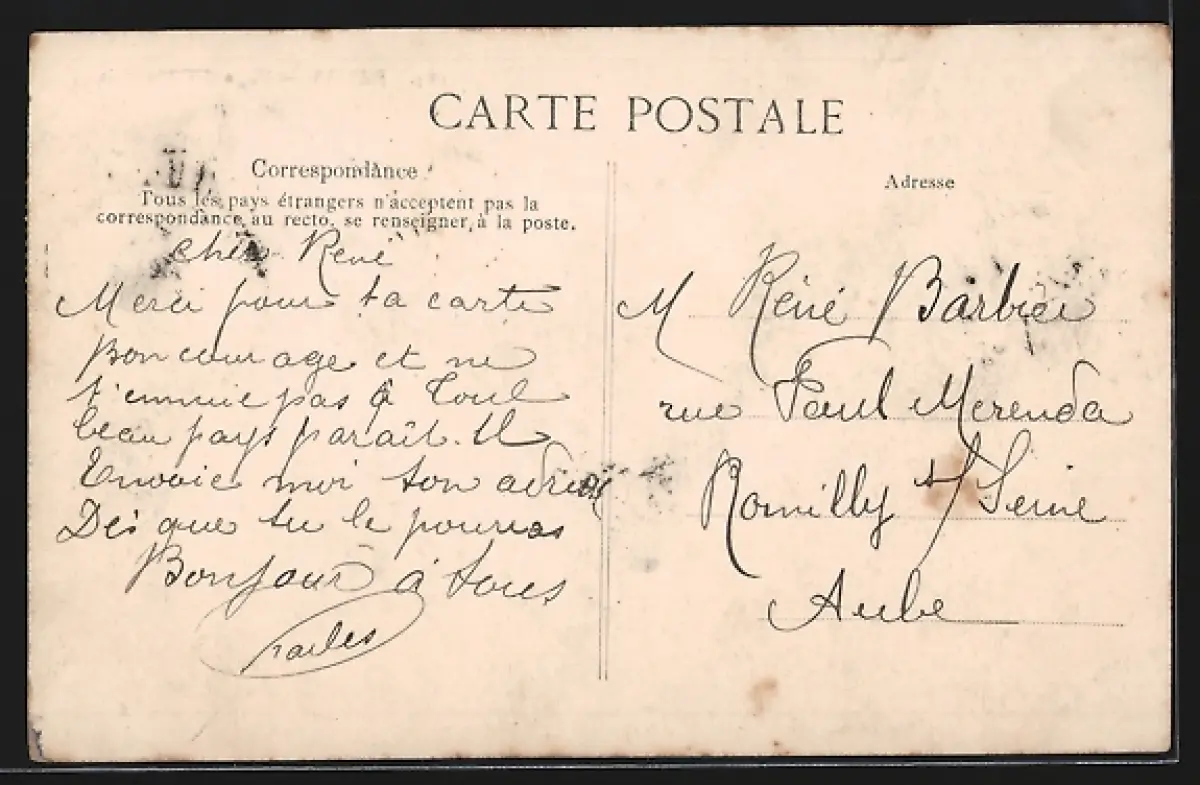 CARTE POSTALE
Correspondance
Tous les pays étrangers n'acceptent pas la
correspondance au recto. se renseigner à la poste.
cher René
Merci pour ta carte
Bon courage et ne
t'ennuie pas à Toul
beau pays parait-Il
Envoie moi ton adresse
Dès que tu le pourras
Bonjour à tous
Charles
Adresse
M René Barbier
rue Paul Merenda
Romilly s/ Seine
Aube